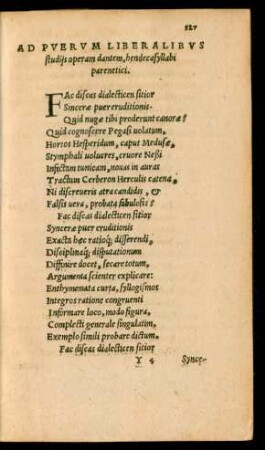 127
AD PVERVM LIBERALIBVS
studijs operam dantem, hendecasyllabi
parenetici.
FAc discas dialecticen sitior
Sinceræ puer eruditionis.
Quid nugæ tibi proderunt canoræ?
Quid cognoscere Pegasi uolatum,
Hortos Hesperidum, caput Medusæ,
Stymphali uolucres, cruore Nessi
Infectam tunicam, nouas in auras
Tractum Cerberon Herculis catena,
Ni discreueris atra candidis, &
Falsis uera, probata fabulosis?
Fac discas dialecticen sitior
Synceræ puer eruditionis
Exacta hęc ratioq; disserendi,
Disciplinaq; disputationum
Diffinire docet, secare totum,
Argumenta scienter explicare:
Enthymemata curta, syllogismos
Integros ratione congruenti
Informare loco, modo, figura,
Complecti generale singulatim,
Exemplo simili probare dictum.
Fac discas dialecticen sitior
Y 4 Synce-